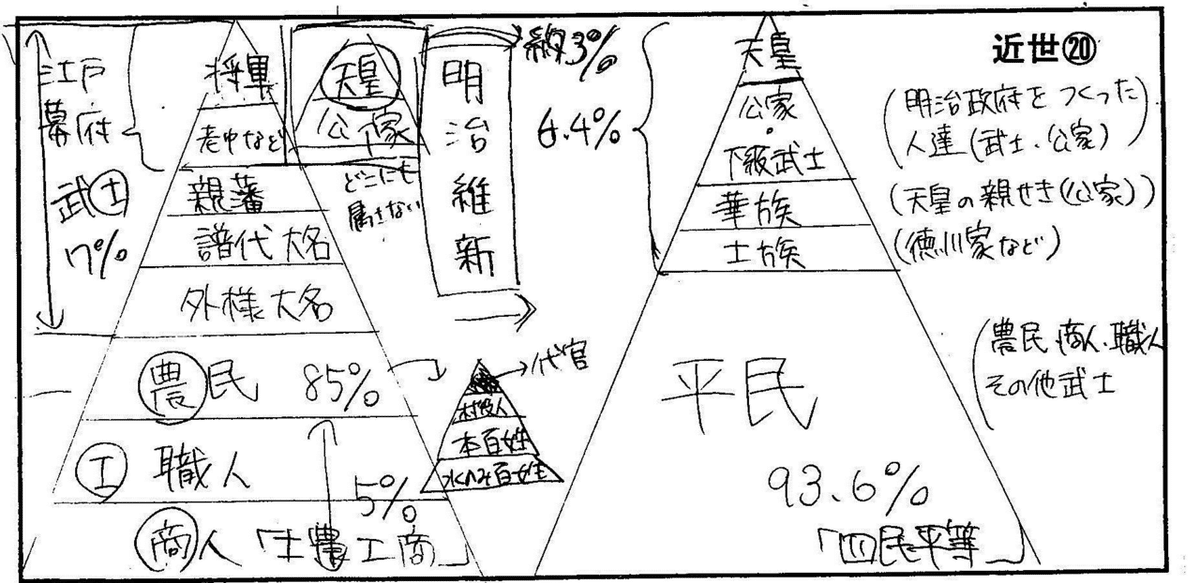 近世⑳
江戸
幕府
武士
7%
将軍
老中など
親藩
譜代大名
外様大名
農民 85%
工 職人
5%
商人 「士農工商」
天皇
公家
どこにも
属さない
明治維新
代官
村役人
本百姓
水のみ百姓
約3%
6.4%
天皇
公家
・
下級武士
華族
士族
平民
93.6%
「四民平等」
(明治政府をつくった
人達(武士、公家))
(天皇の親せき(公家))
(徳川家など)
(農民、商人、職人
その他武士